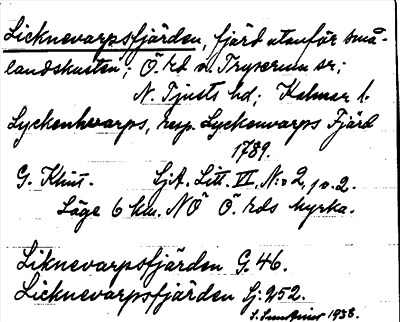 Licknevarpsfjärden, fjärd utanför små-
landskusten; Ö. Ed o. Tryserum sr;
N. Tjusts hd; Kalmar l.
Lyckenhvarps, resp. Lyckenvarps Fjärd
1789.
G. Klint. SjA. Litt. VI, N:o 2, p. 2.
Läge 6 km. NÖ Ö. Eds kyrka.
Liknevarpsfjärden G. 46.
Licknevarpsfjärden Gj: 252.
1938.